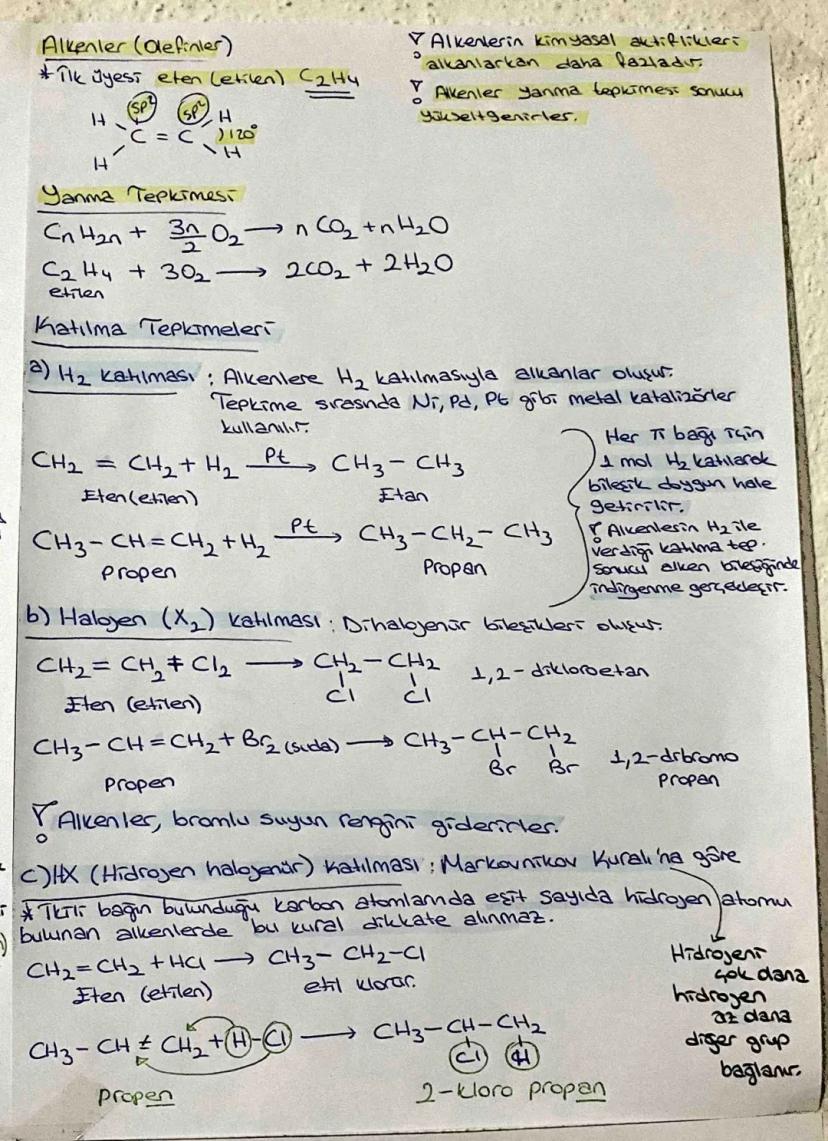 Alkenler (Olefinler)
* İlk üyesi eten (etilen) C2H4
sp2 sp2
H H
C = C )120°
H H
! Alkenlerin kimyasal aktiflikleri
alkanlarkan daha fazladır.
! Alkenler yanma tepkimesi sonucu
yükseltgenirler.
Yanma Tepkimesi
CnH2n + 3n/2 O2 → n CO2 + nH2O
C2H4 + 3O2 → 2CO2 + 2H2O
etilen
Katılma Tepkimeleri
a) H2 katılması : Alkenlere H2 katılmasıyla alkanlar oluşur.
Tepkime sırasında Ni, Pd, Pt gibi metal katalizörler
kullanılır.
CH2 = CH2 + H2 Pt→ CH3 – CH3
Eten (etilen) Etan
CH3 – CH = CH2 + H2 Pt→ CH3 – CH2 – CH3
Propen Propan
Her π bağı için
1 mol H2 katılarak
bileşik doygun hale
getirilir.
! Alkenlerin H2 ile
verdiği katılma tep.
sonucu alken bileşiğinde
indirgenme gerçekleşir.
b) Halojen (X2) katılması : Dihalojenür bileşikleri oluşur.
CH2 = CH2 + Cl2 → CH2 – CH2 1,2-dikloroetan
Cl Cl
Eten (etilen)
CH3 – CH = CH2 + Br2 (suda) → CH3 – CH – CH2
Br Br
Propen
1,2-dibromo
propan
! Alkenler, bromlu suyun rengini giderirler.
c) HX (Hidrojen halojenür) katılması : Markovnikov Kuralı'na göre
* İkili bağın bulunduğu karbon atomlarında eşit sayıda hidrojen atomu
bulunan alkenlerde bu kural dikkate alınmaz.
CH2 = CH2 + HCl → CH3 – CH2 – Cl
Eten (etilen) etil klorür.
Hidrojeni
çok olana
hidrojen
az olana
diğer grup
bağlanır.
CH3 – CH = CH2 + H – Cl → CH3 – CH – CH2
Cl H
propen 2-kloro propan